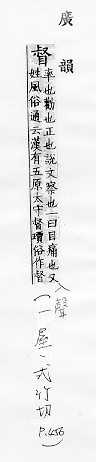 廣韻
督率也勸也正也說文察也一曰目痛也又
姓風俗通云漢有五原太守督瓚俗作督
入聲
(一)屋、式竹切
P.456)